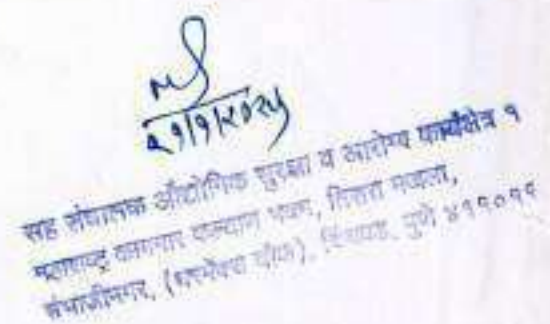 २१/१/२०२५
सह संचालक औद्योगिक सुरक्षा व आरोग्य कार्यक्षेत्र १
महाराष्ट्र कामगार कल्याण भवन, तिसरा मजला,
संभाजीनगर, (थरमॅक्स चौक), चिंचवड, पुणे ४११०१९